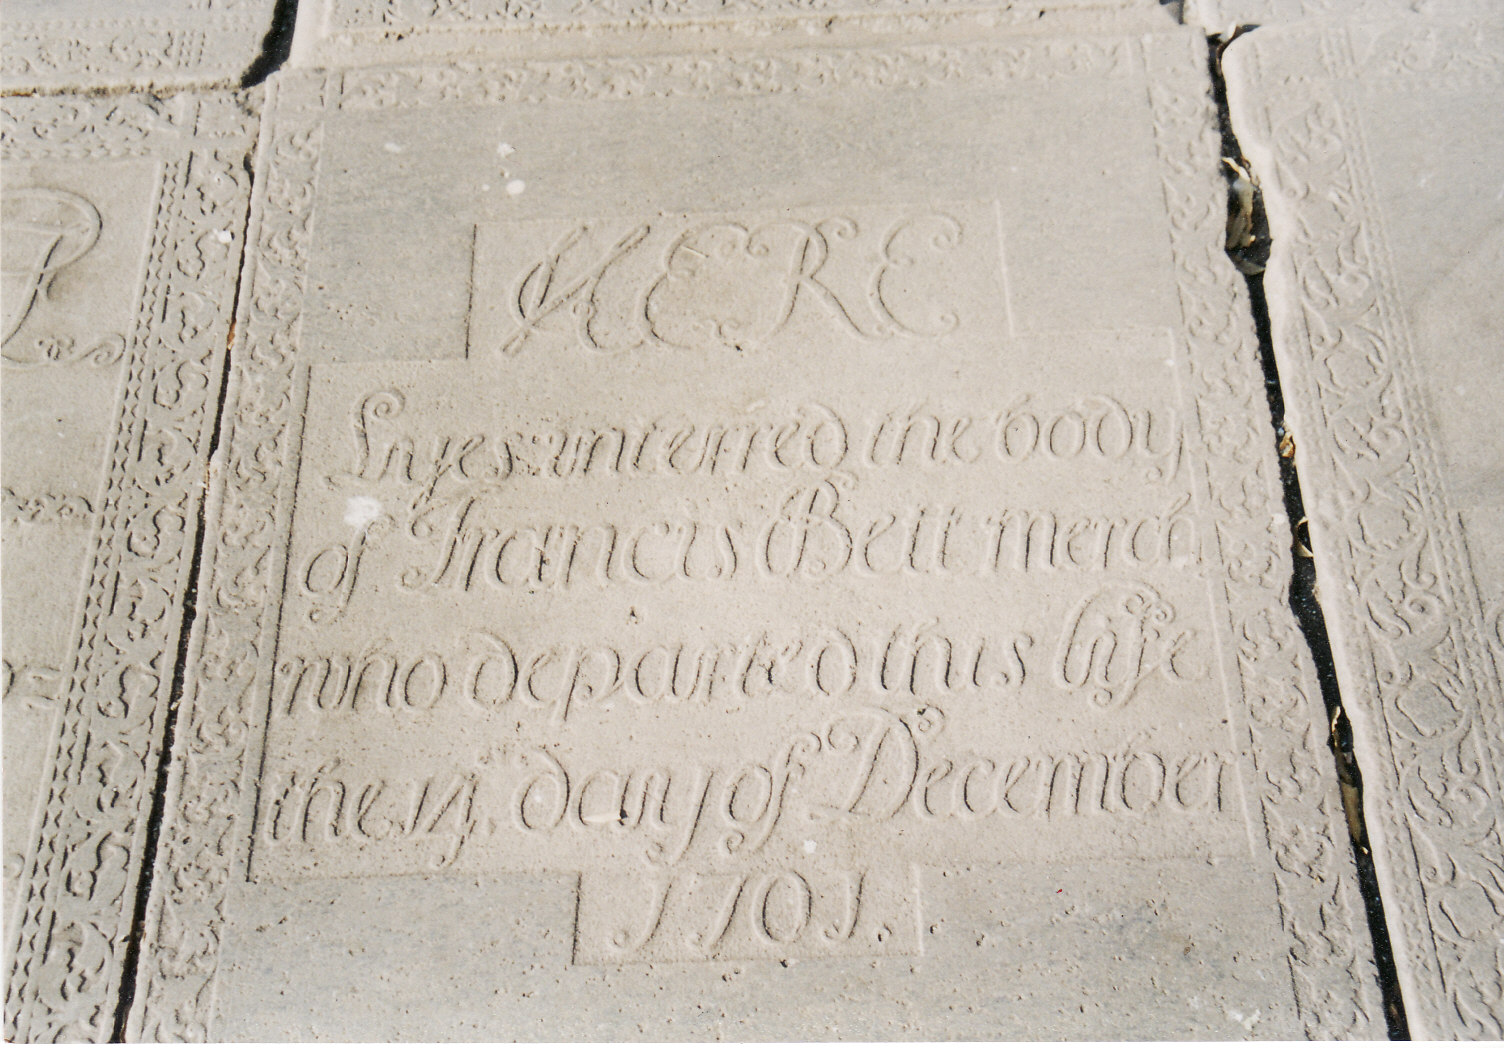 HERE
Lyes interred the body
of Francis Bett merch
who departed this life
the 14 day of December
1701.